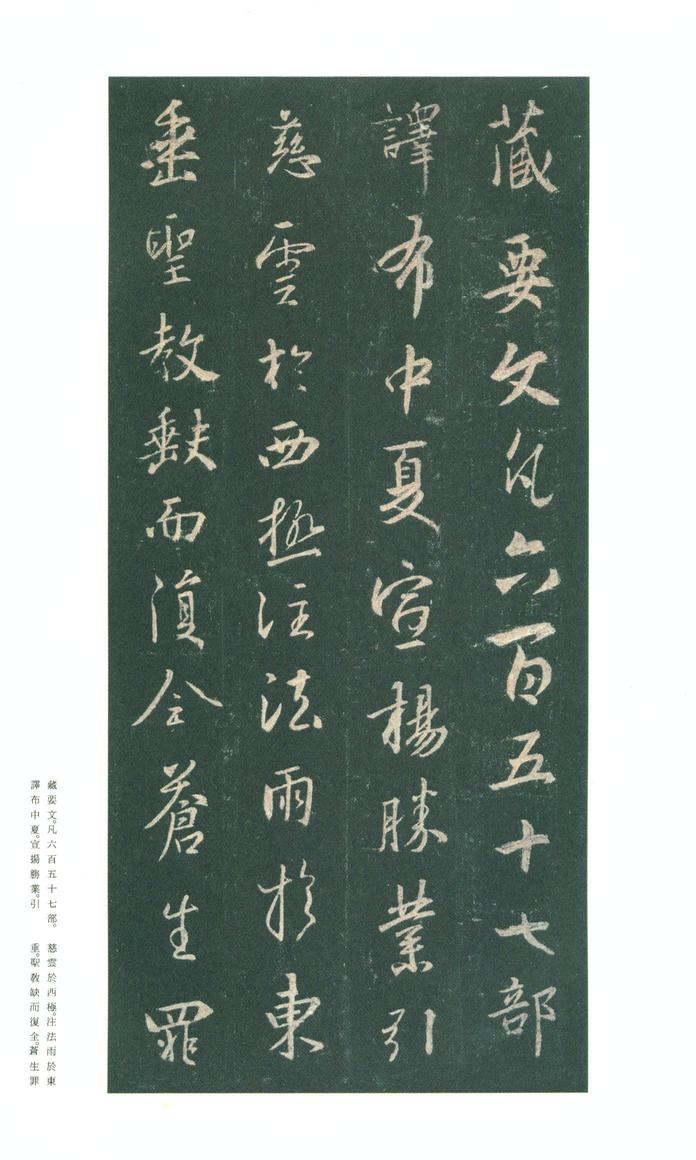 藏要文凡六百五十七部
譯布中夏宣楊勝業引
慈雲於西極注法雨於東
垂聖教缺而復全蒼生罪
藏要文。凡六百五十七部。
譯布中夏。宣揚勝業。引
慈雲於西極。注法雨於東
垂。聖教缺而復全。蒼生罪